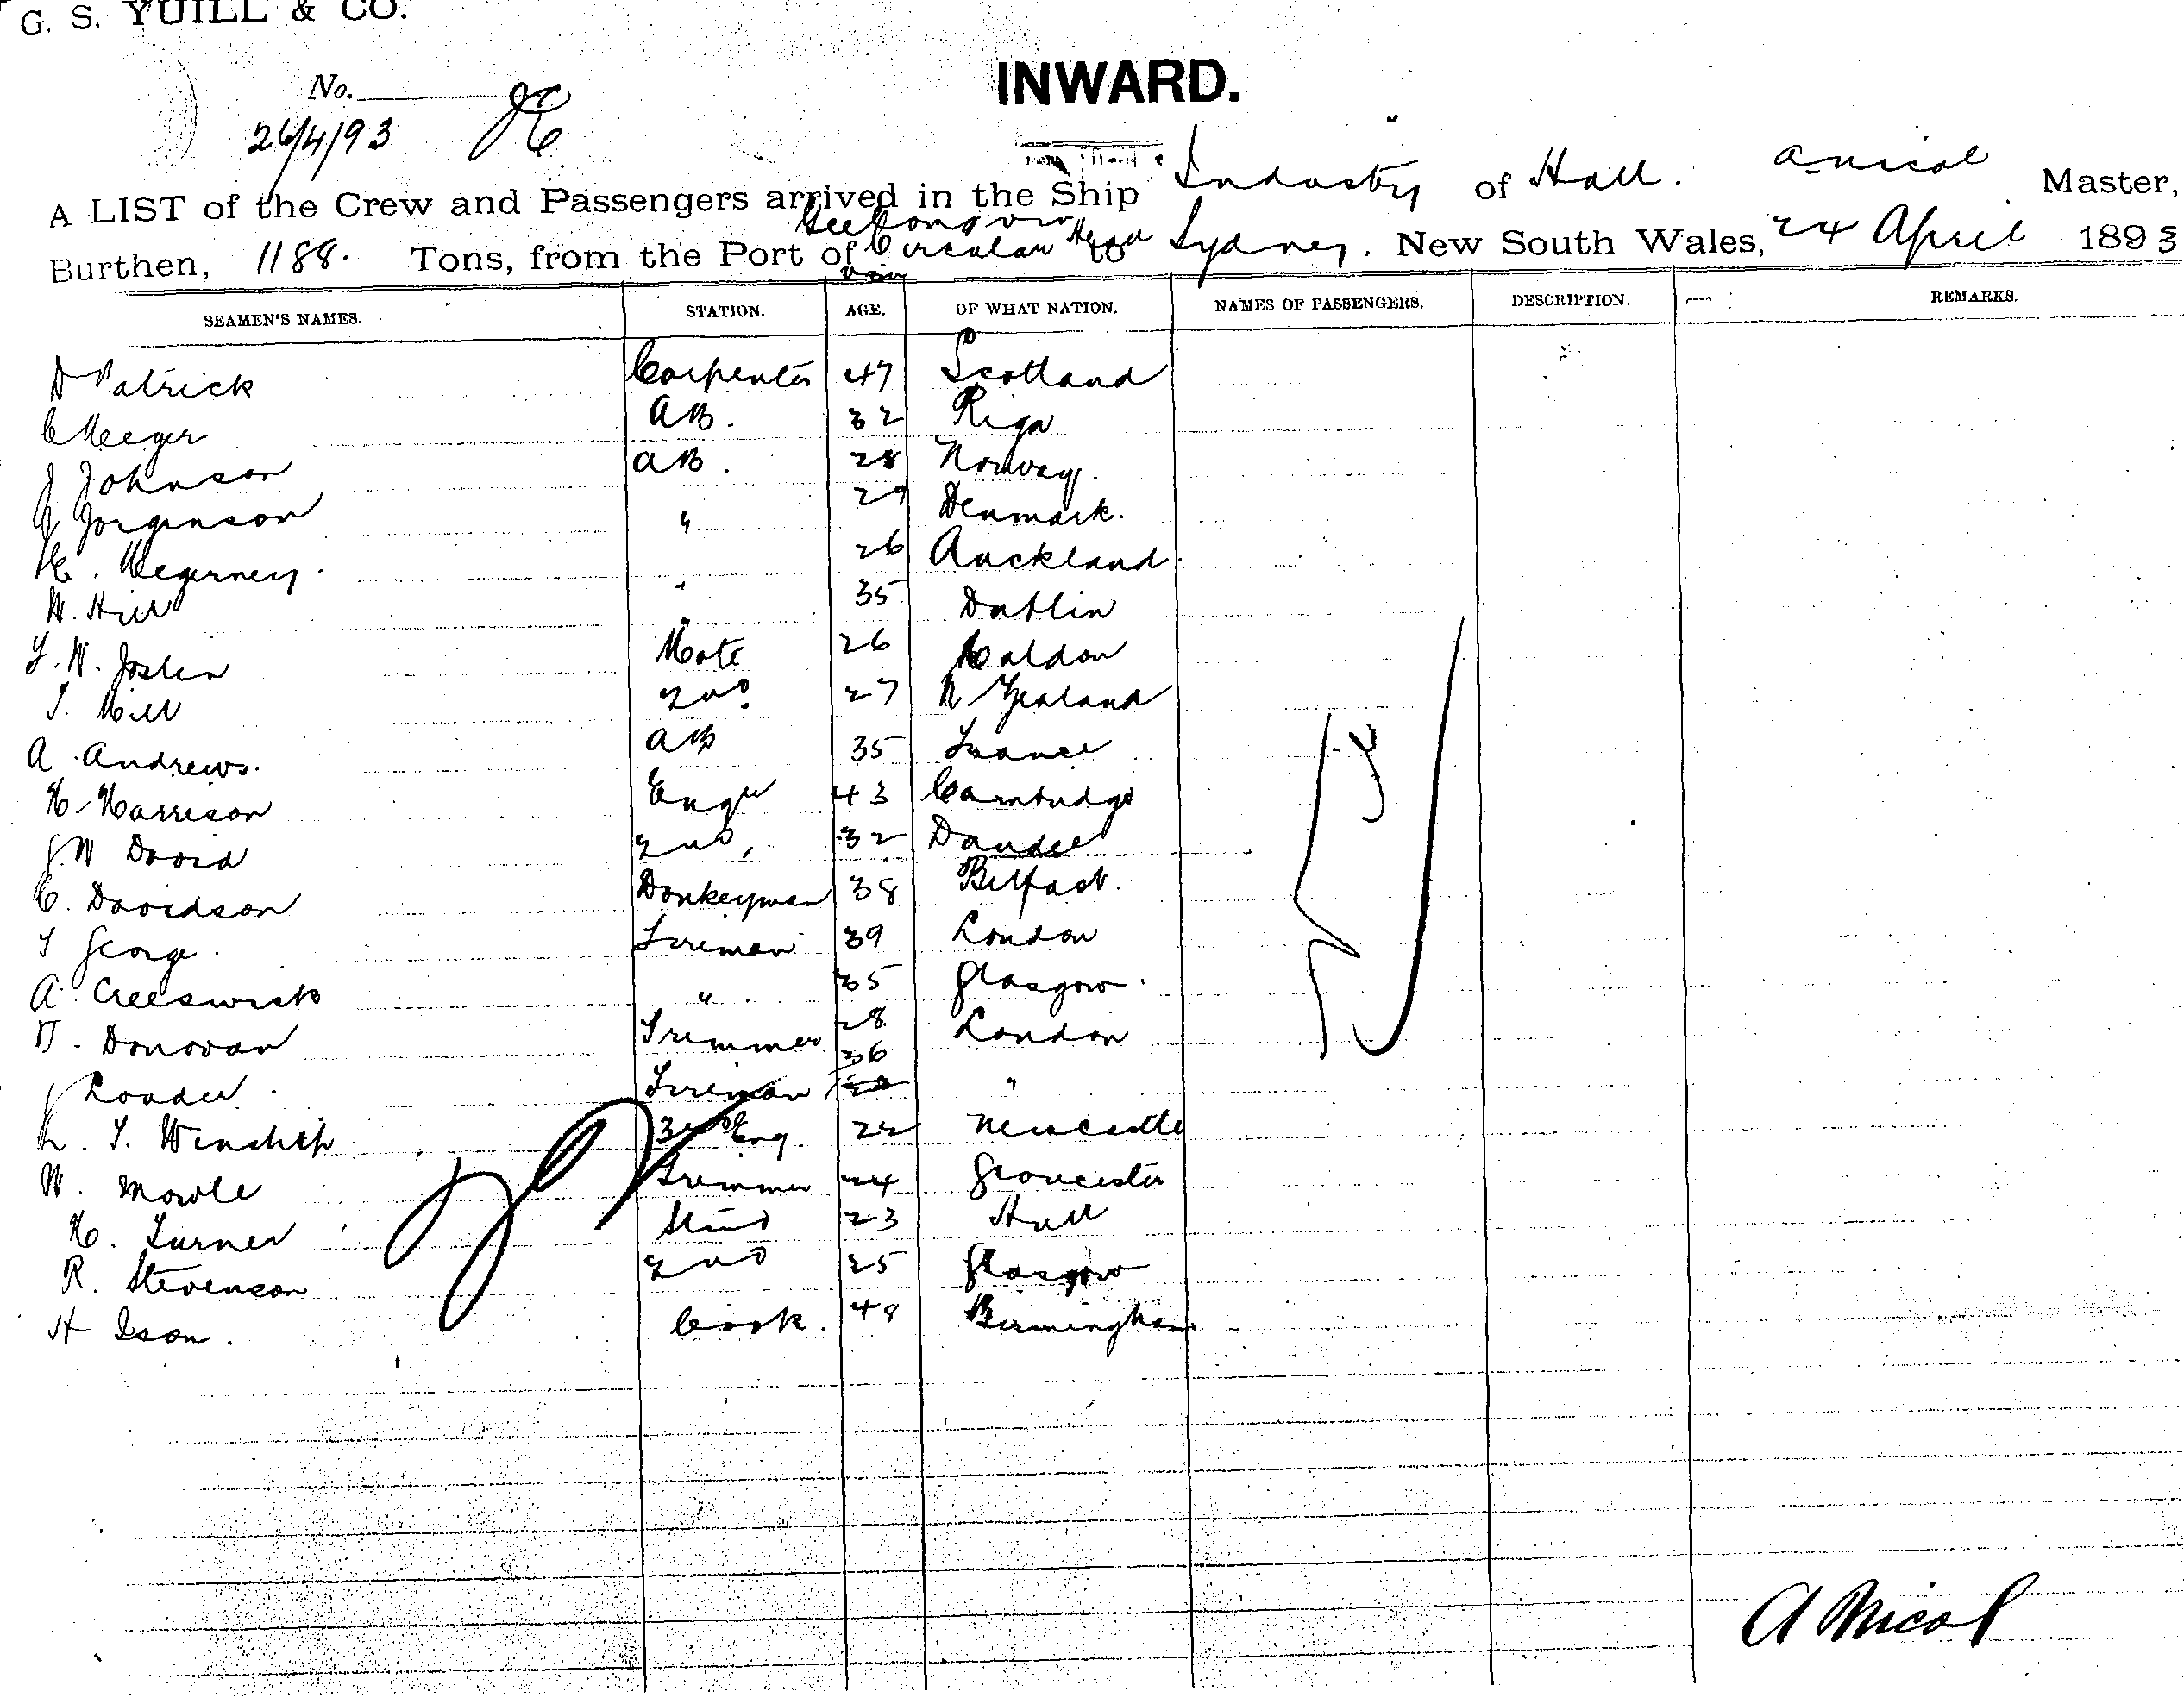 G. S. YUILL & CO.
INWARD.
No.
26/4/93
A LIST of the Crew and Passengers arrived in the Ship Industry of Hull. A Nicol Master,
Burthen, 1188. Tons, from the Port of Geelong via Circular Head to Sydney. New South Wales, 24 April 1893
SEAMEN'S NAMES. STATION. AGE. OF WHAT NATION. NAMES OF PASSENGERS. DESCRIPTION. REMARKS.
D Patrick Carpenter 47 Scotland
C Meeger AB. 32 Riga
J Johnson AB. 28 Norway.
J Jorgenson " 29 Denmark.
H. " 26 Auckland
W. Hill " 35 Dublin
W. Joslin Mate 26 Maldon
T. Mill 2nd 27 N Zealand
A. Andrews. AB 35 France
H. Harrison Engr 43 Cambridge
J. W David 2nd, 32 Dundee
C. Davidson Donkeyman 38 Belfast
T George. Fireman 39 London
A. Creeswick " 35 Glasgow.
D. Donovan Trimmer 28 London
J Fireman 36 "
L. T. Winship 3rd Eng. 22 Newcastle
W. Mowle Trimmer 24 Gloucester
H. Turner Stwd 23 Hull
R. Stevenson 2nd 25 Glasgow
H Ison. Cook. 48 Birmingham
A Nicol